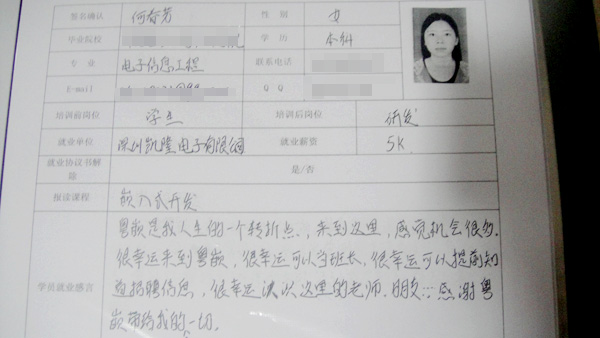 签名确认 何春芳 性 别 女
毕业院校 学 历 本科
专 业 电子信息工程 联系电话
E-mail Q Q
培训前岗位 学生 培训后岗位 研发
就业单位 深圳凯隆电子有限公司 就业薪资 5K
就业协议书解除 是/否
报读课程 嵌入式开发
学员就业感言
粤嵌是我人生的一个转折点.,来到这里,感觉机会很多.
很幸运来到粤嵌,很幸运可以当班长,很幸运可以提前知
道招聘信息,很幸运认识这里的老师.朋友...感谢粤
嵌带给我的一切.